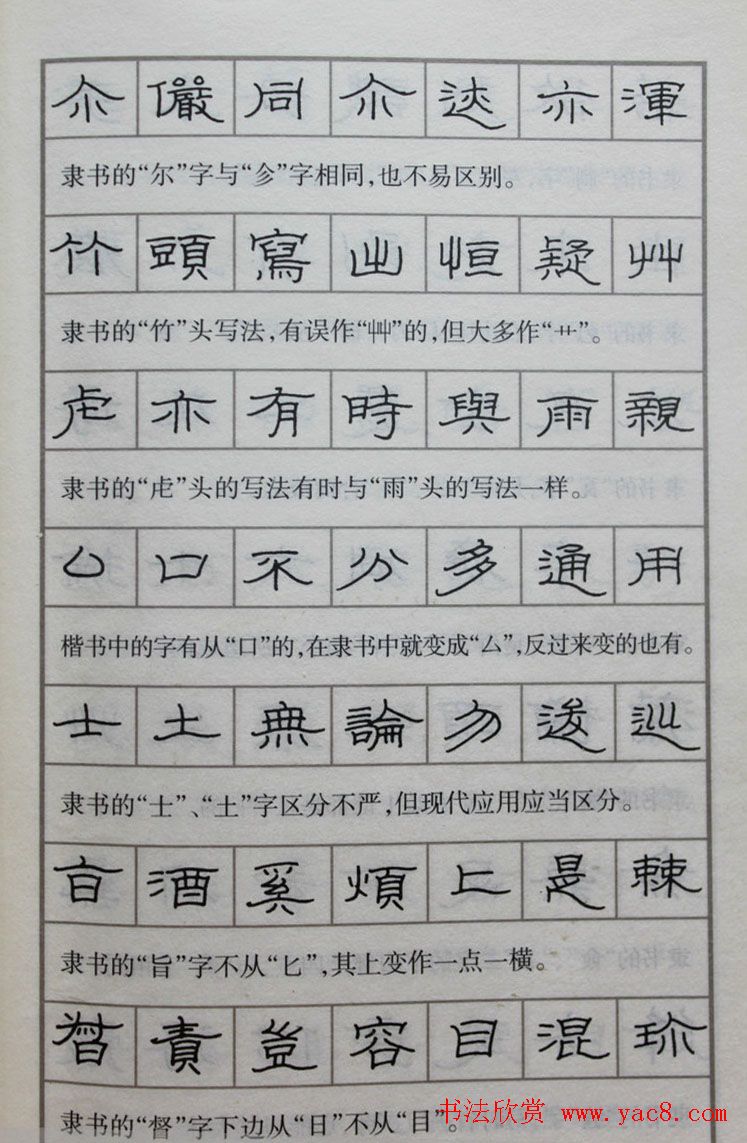 尒儼同尒迷亦渾
隶书的“尔”字与“㐱”字相同，也不易区别。
竹頭寫出恒疑艸
隶书的“竹”头写法，有误作“艸”的，但大多作“䒑”。
虍亦有時與雨親
隶书的“虍”头的写法有时与“雨”头的写法一样。
厶口不分多通用
楷书中的字有从“口”的，在隶书中就变成“厶”，反过来变的也有。
士土無論勿逡巡
隶书的“士”、“土”字区分不严，但现代应用应当区分。
旨酒奚煩匕是棘
隶书的“旨”字不从“匕”，其上变作一点一横。
督責豈容目混珎
隶书的“督”字下边从“日”不从“目”。
书法欣赏 www.yac8.com